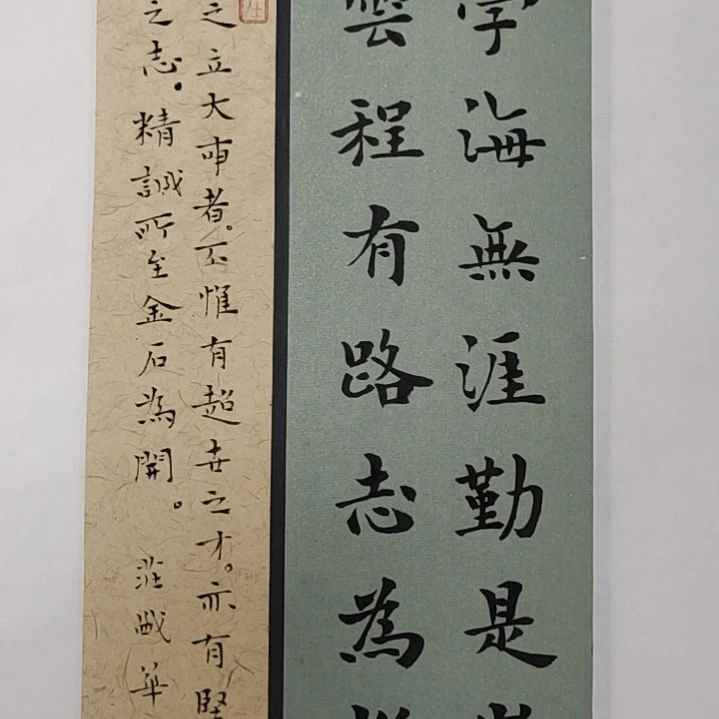 學海無涯勤是
雲程有路志為
之立大事者。不惟有超世之才。亦有堅
之志。精誠所至金石為開。